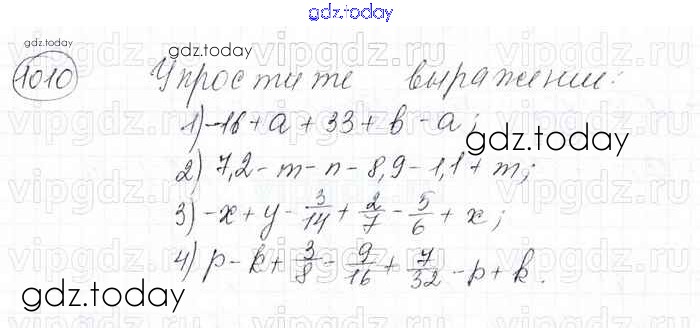 gdz.today
gdz.today
gdz.today
1010 Упростите выражении:
1) -16 + a + 33 + b - a;
gdz.today
2) 7,2 - m - n - 8,9 - 1,1 + m;
3) -x + y - 3/14 + 2/7 - 5/6 + x;
4) p - k + 3/8 - 9/16 + 7/32 - p + k.
gdz.today